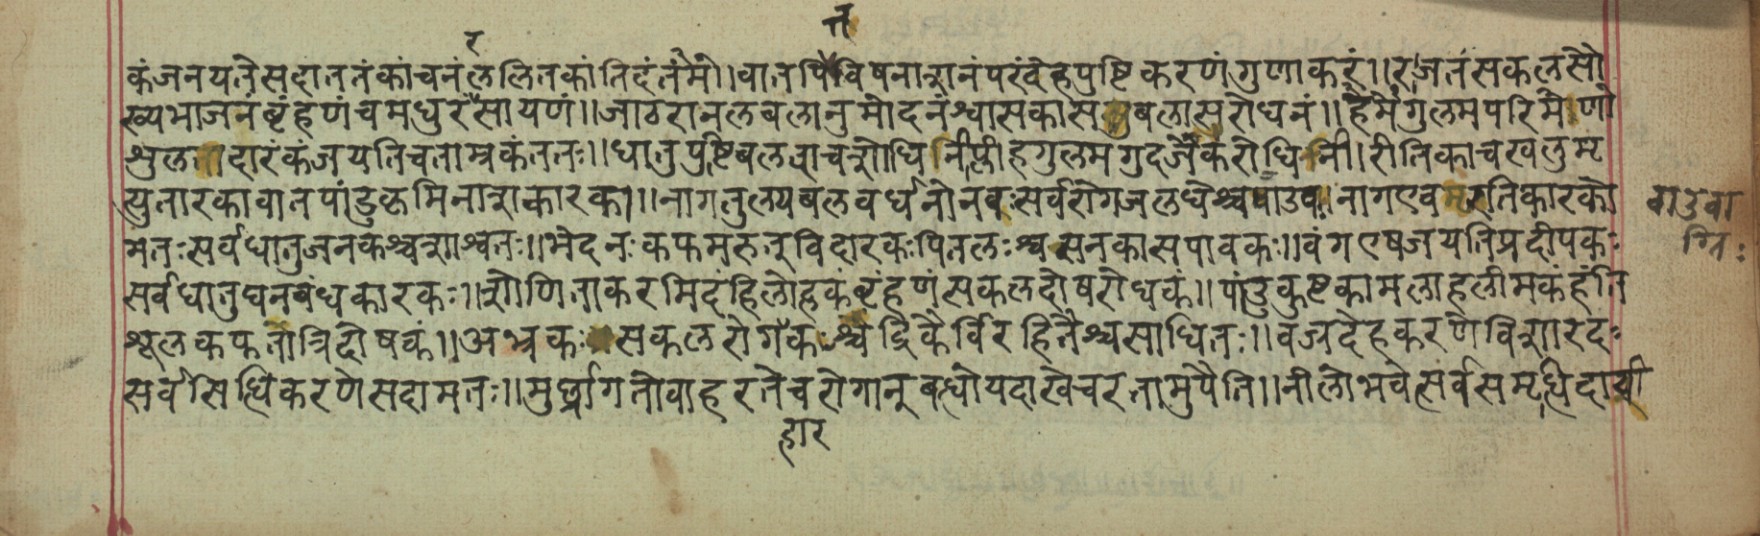 र
त्त
कं जनयते सदा ततं कांचनं ललितकांतिदं तमे।। वातपित्तविषनाशनं परं देहपुष्टिकरणं गुणाकरं।। रजतं सकलसौ
ख्यभाजनं बृंहणं च मधुरं रसायणं।। जाठरानलबलानुमोदनं श्वासकासबलासरोधनं।। हेम गुलमपरिमे
शुल दारकं जयति च ताम्रकं ततः।। धातुपुष्टिबलवाच शोधिनी प्लीहगुलमगुद रोधिनी। रीतिका च खलु मृ
त्युतारका वातपांडुकृमिनाशकारका।। नागतुलयबलवर्धनो नवः सर्वरोगजलधेश्च वाडव।। नाग एव मृतिकारको
मतः सर्वधातुजनकश्च शाश्वतः।। भेदनः कफमरुत् विदारकः पितलः श्वसनकासपावकः।। वंग एष जयति प्रदीपकः
सर्वधातुघनबंधकारकः।। शोणिताकरमिदं हि लोहकं बृंहणं सकलदोषरोधकं।। पांडुकुष्टकामलाहलीमकं हंति
शूलकफतात्रिदोषकं।। अभ्रकः सकलरोग श्चंद्रिकैर्विरहितैश्च साधितः।। वज्रदेहकरणे विशारदः
सर्वसिधिकरणे सदा मतः।। मुर्छागतो वा हरते च रोगान् बध्धो यदा खेचरतामुपैति।। नीलो भवेत्सर्वसमृधिदायी
वाडवा
ग्निः
हार